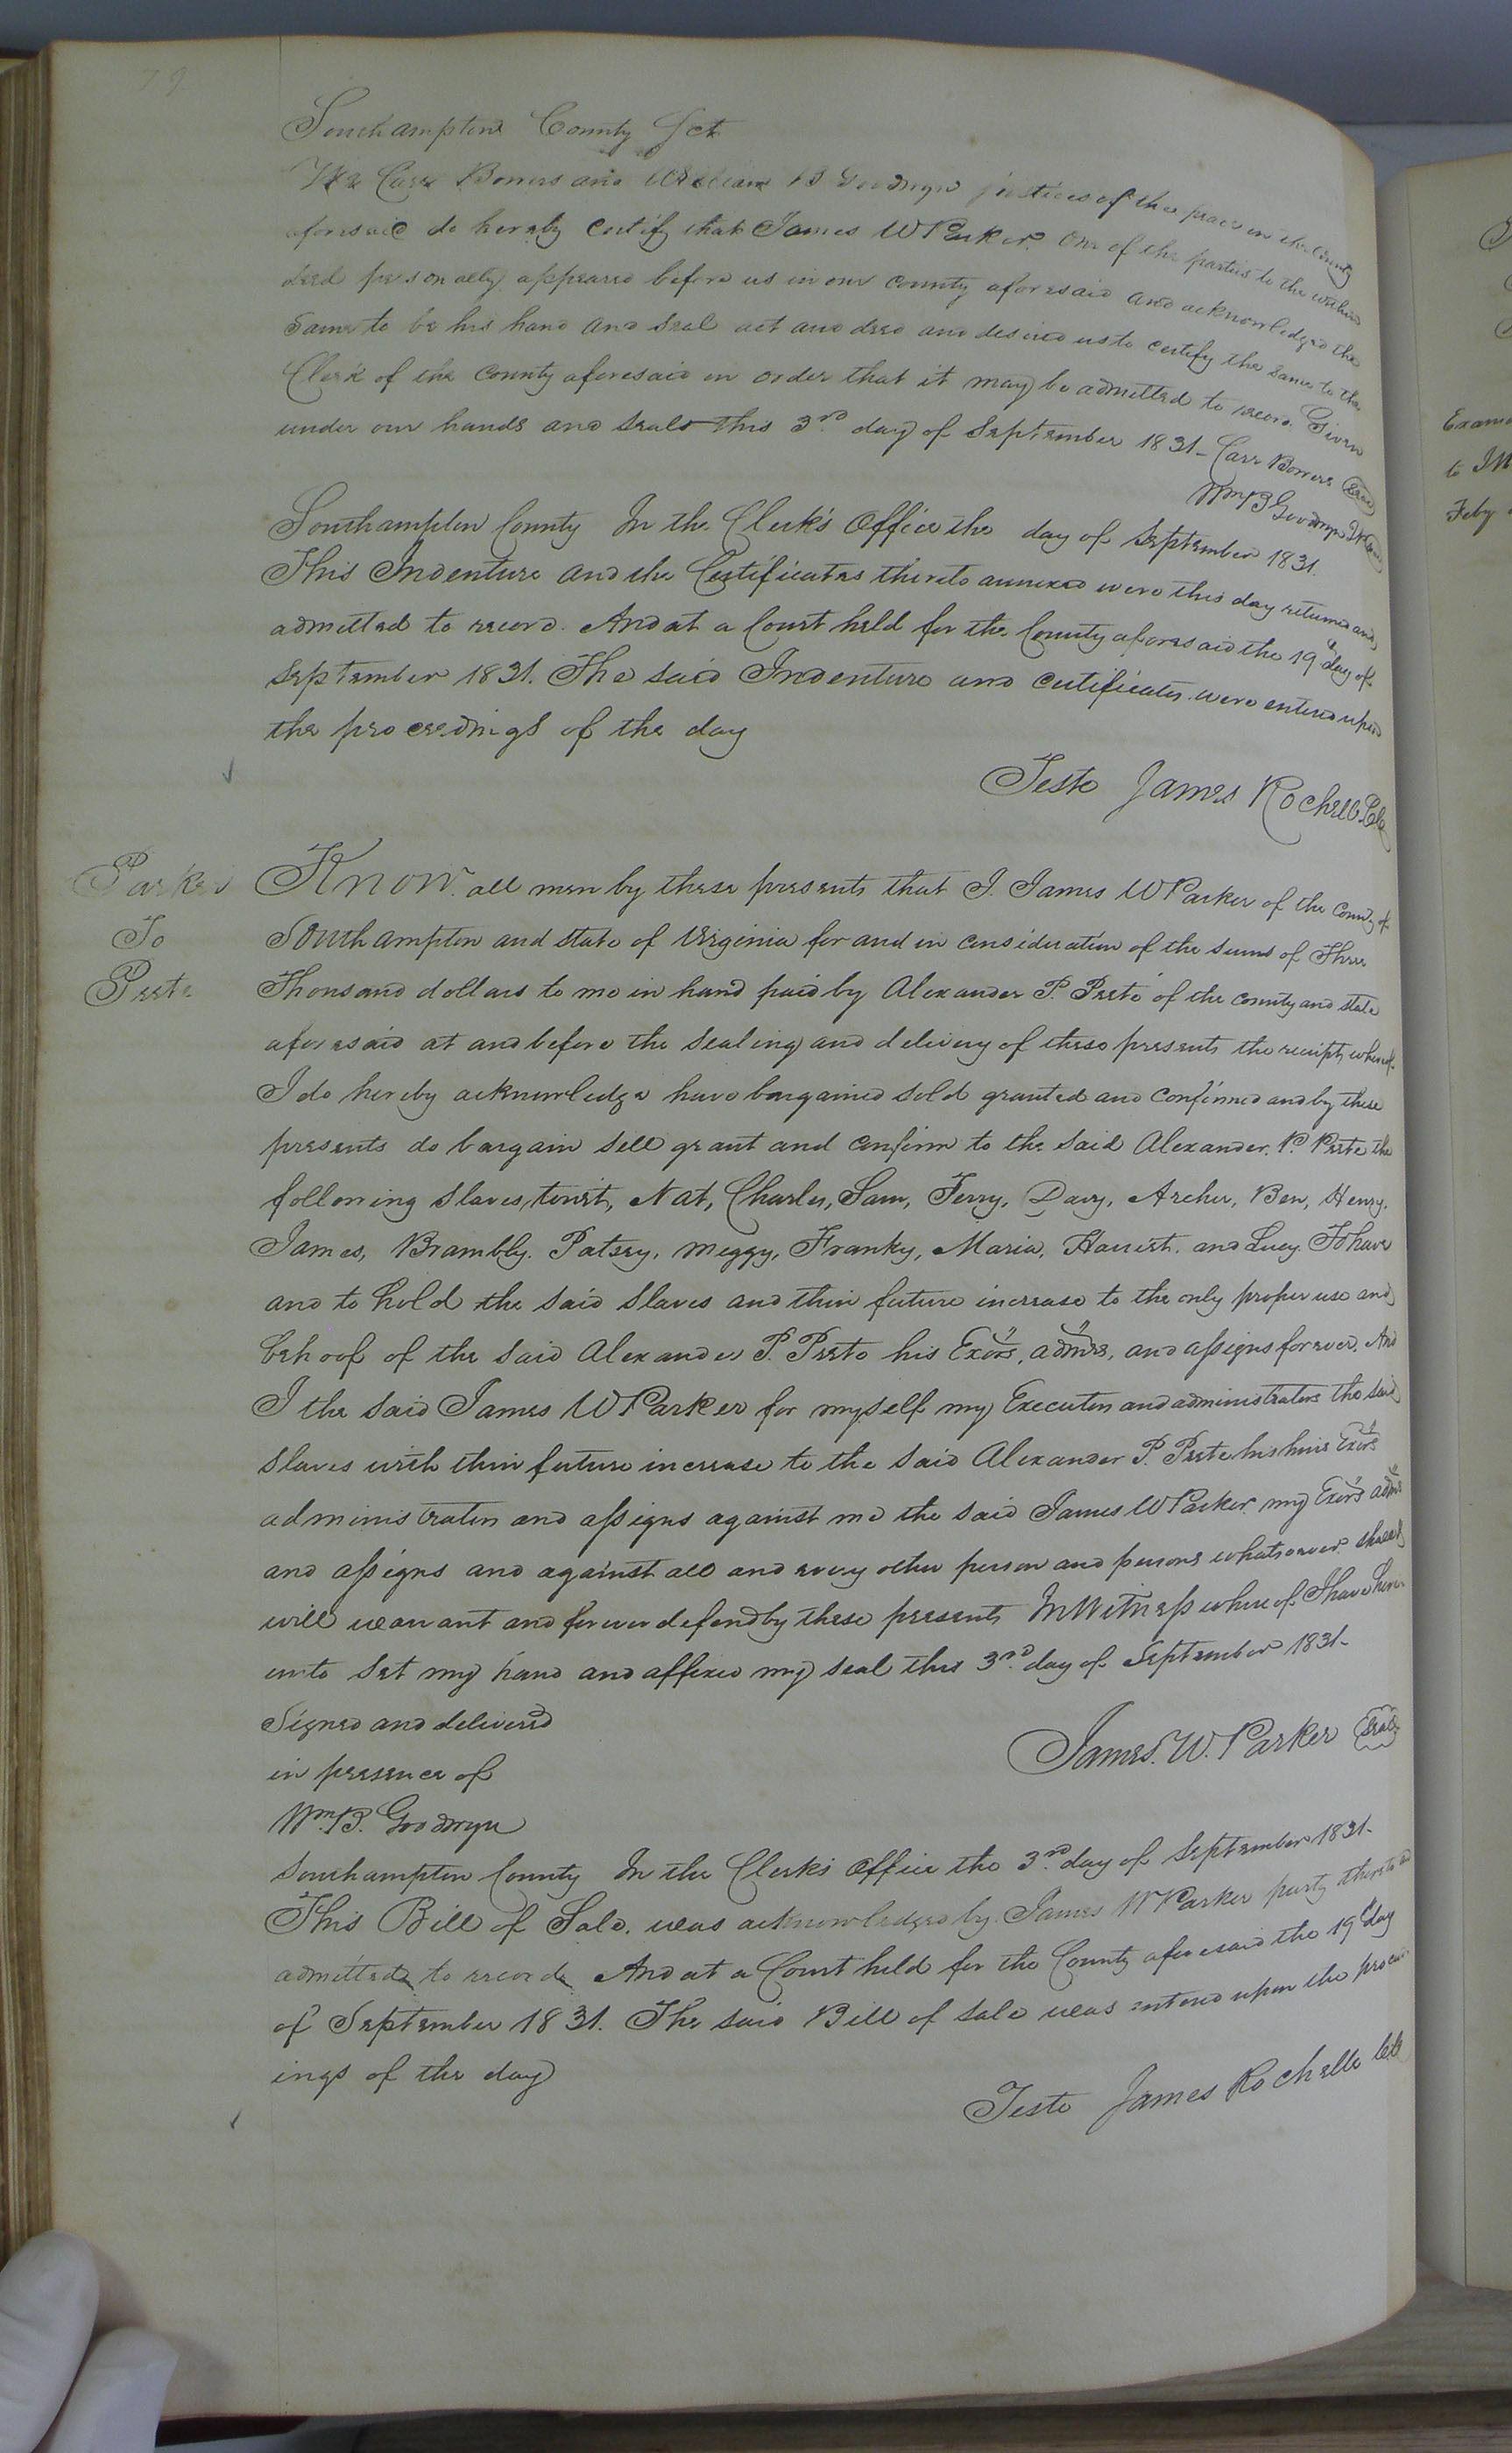 79
Southampton County Sct
We Carr Bowers and William B Goodwyn justices of the peace in the County
aforesaid do hereby certify that James W Parker one of the parties to the within
deed personally appeared before us in our county aforesaid and acknowledged the
same to be his hand and seal act and deed and desired us to certify the same to the
Clerk of the County aforesaid in order that it may be admitted to record. Given
under our hands and seals this 3rd day of September 1831- Carr Bowers Seal
Wm B Goodwyn
Southampton County In the Clerk's Office the day of September 1831.
This Indenture and the Certificates thereto annexed were this day returned and
admitted to record. And at a Court held for the County aforesaid the 19th day of
September 1831. The said Indenture and certificates were entered upon
the proceedings of the day
Teste James Rochelle Clk
Parker
To
Peete
Know all men by these presents that I. James W Parker of the County of
Southampton and state of Virginia for and in consideration of the sum of Three
Thousand dollars to me in hand paid by Alexander P. Peete of the county and state
aforesaid at and before the sealing and delivery of these presents the receipt whereof
I do hereby acknowledge have bargained sold granted and confirmed and by these
presents do bargain sell grant and confirm to the said Alexander. P. Peete the
following slaves, towit, Nat, Charles, Sam, Jerry, Davy, Archer, Ben, Henry,
James, Brambly. Patsey, Meggy, Franky, Maria, Harriet. and Lucy. To have
and to hold the said slaves and their future increase to the only proper use and
behoof of the said Alexander P. Peete his Exors, admrs, and assigns forever. And
I the said James W Parker for myself my Executors and administrators the said
slaves with their future increase to the said Alexander P. Peete his heirs Exors
administrators and assigns against me the said James W Parker my Exors admrs
and assigns and against all and every other person and persons whatsoever shall &
will warrant and forever defend by these presents In Witness whereof I have here
unto set my hand and affixed my seal this 3rd day of September 1831-
Signed and delivered
in presence of
Wm. B. Goodwyn
James. W. Parker Seal
Southampton County In the Clerk's Office the 3rd day of September 1831-
This Bill of Sale. was acknowledged by James W Parker party thereto and
admitted to record. And at a Court held for the County aforesaid the 19th day
of September 1831. The said Bill of sale was entered upon the proceed
ings of the day
Teste James Rochelle Clk
to
Feby